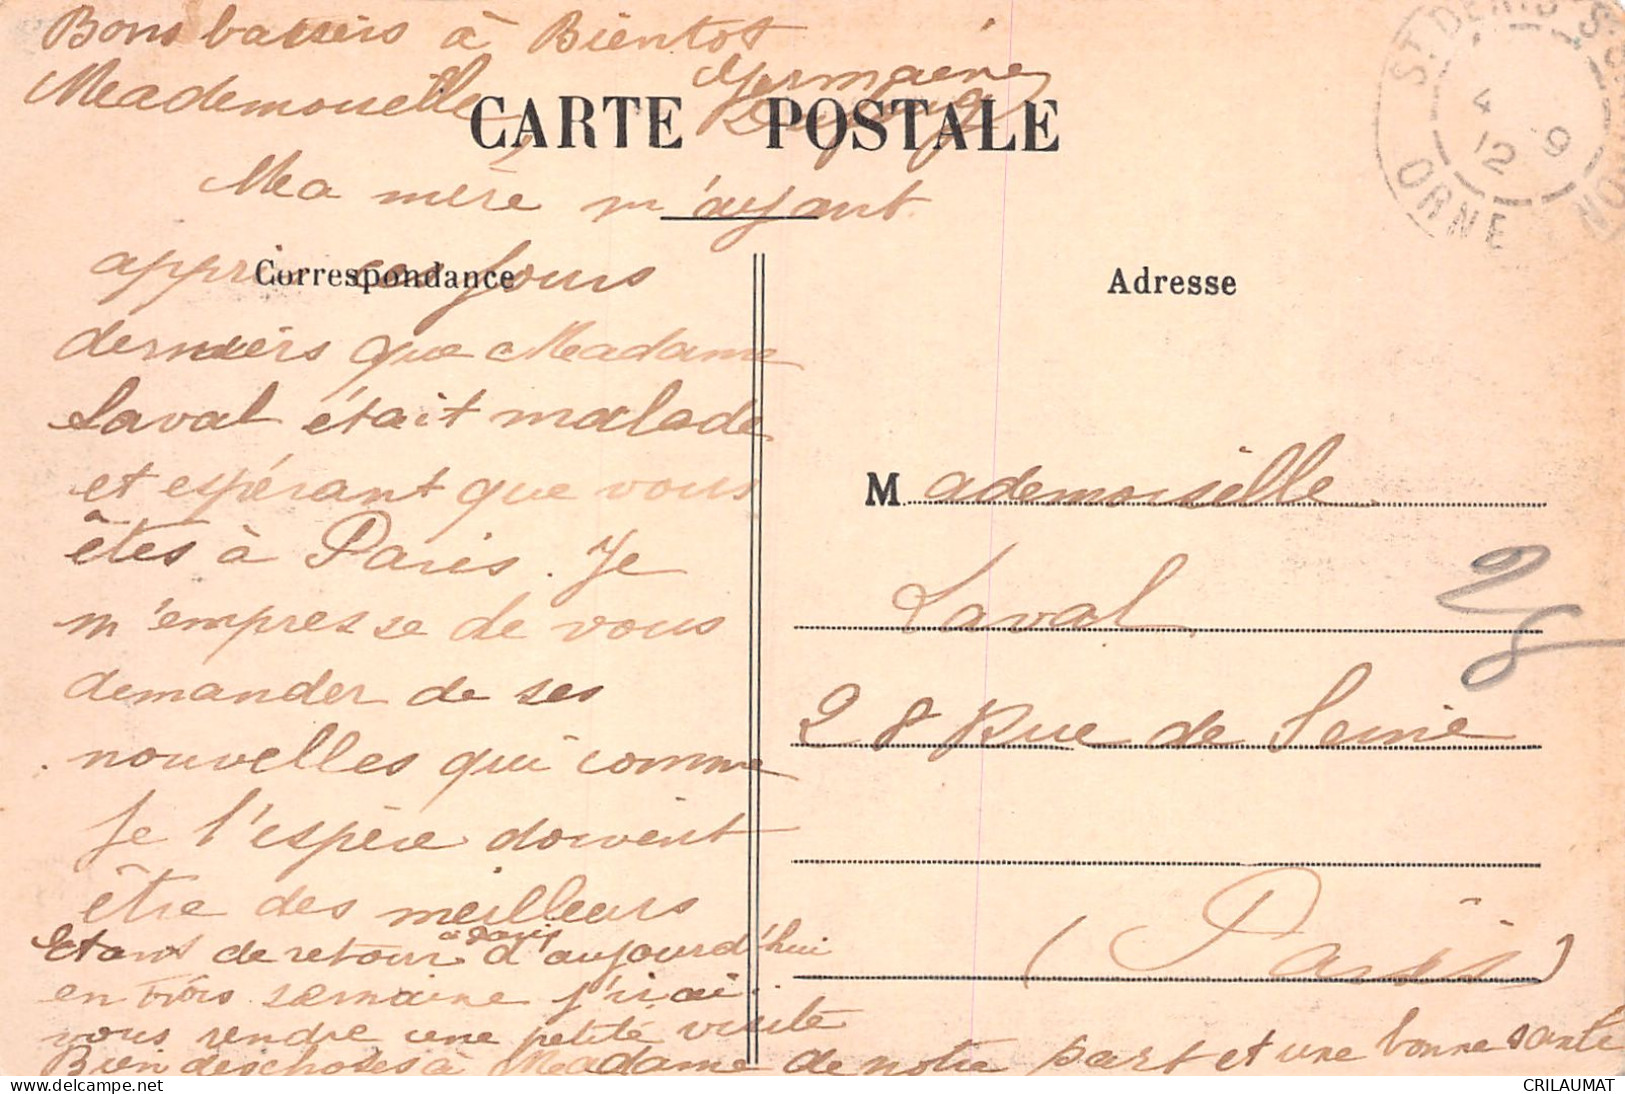 Bons baisers à Bientot
Germaine
Mademouelle
CARTE POSTALE
Ma mère m'ayant
appris ces jours
Correspondance
derniers que Madame
Laval était malade
et espérant que vous
êtes à Paris. Je
m'empresse de vous
demander de ses
nouvelles qui comme
je l'espère doivent
être des meilleurs
Etant de retour à Paris d'aujourd'hui
en trois semaine j'irai
vous rendre une petite visite
Bien des choses à Madame de notre part et une bonne santé
ST. DENIS-S-SARTHON
4 9
12
ORNE
Adresse
Mademoiselle
Laval
28 Rue de Seine
(Paris)
25
delcampe.net
CRILAUMAT